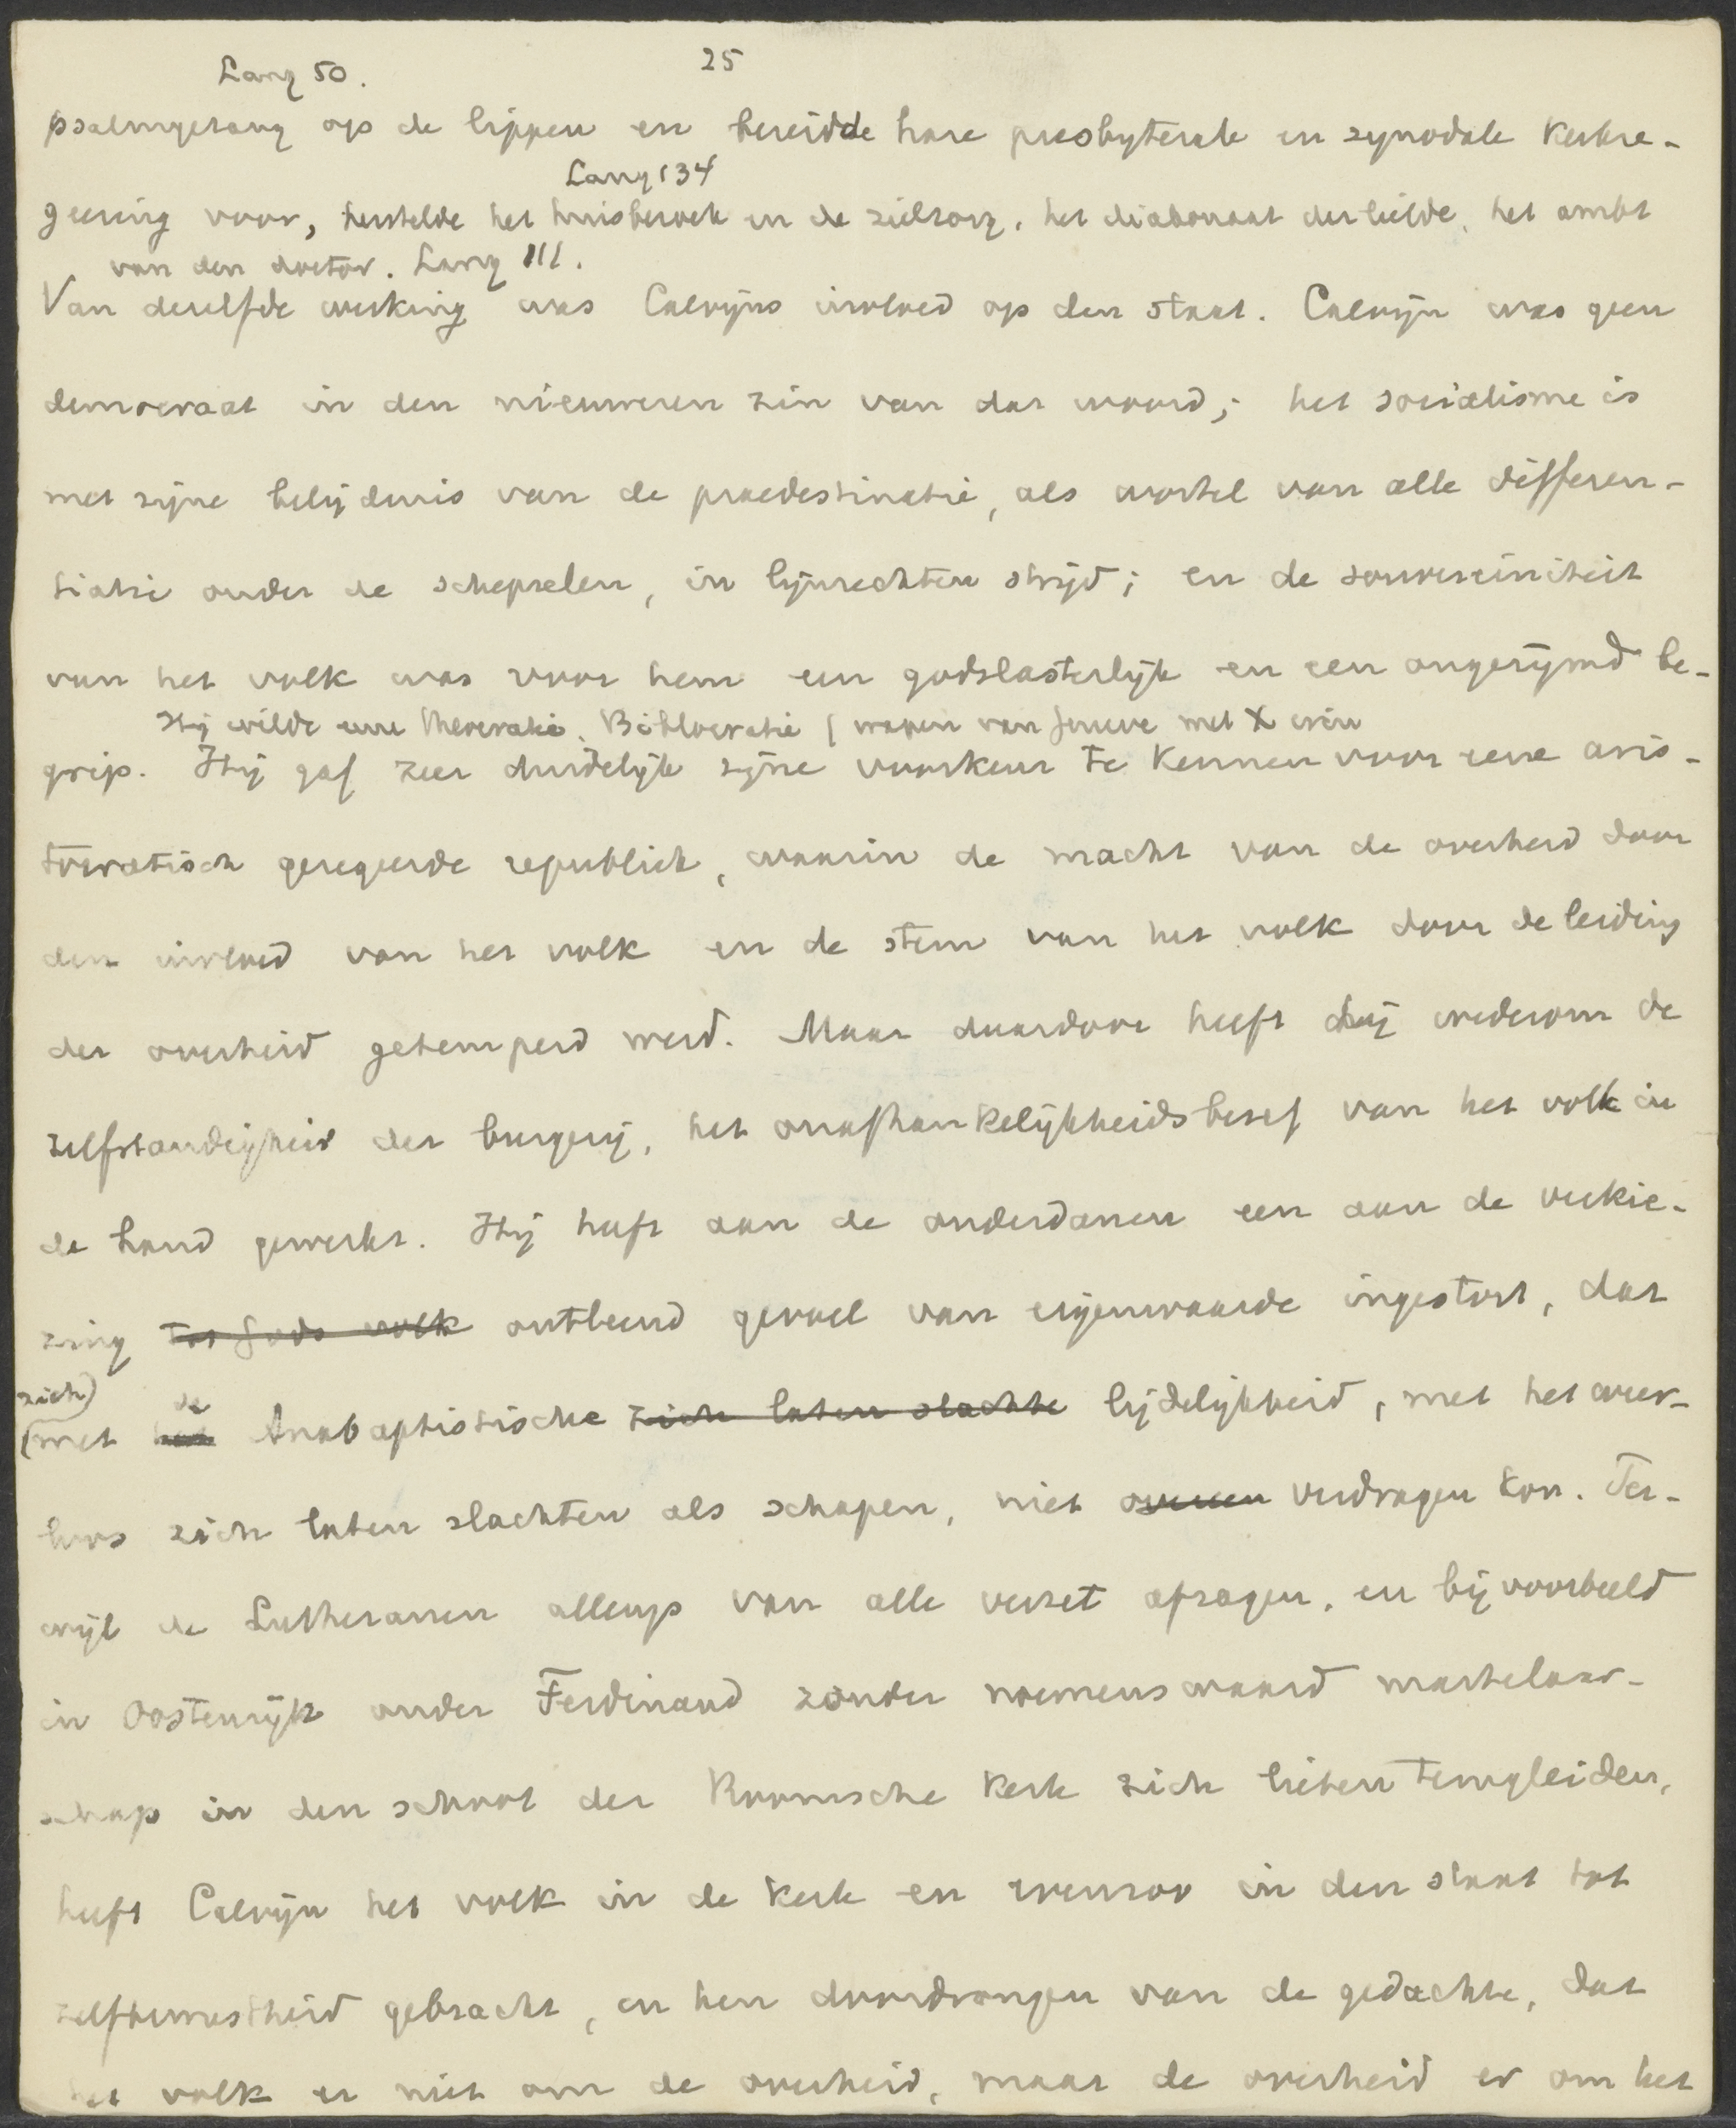 Lang 50.
25
psalmgezang op de lippen en bereidde hare presbyterale en synodale kerkre-
Lang 134
geering voor, herstelde het huisbezoek en de zielzorg, het diakonaat der liefde, het ambt
van den doctor. Lang 111.
Van dezelfde werking was Calvijns invloed op den staat. Calvijn was geen
democraat in den nieuweren zin van dat woord; het socialisme is
met zijne belijdenis van de praedestinatie, als wortel van alle differen-
tiatie onder de schepselen, in lijnrechten strijd; en de souvereiniteit
van het volk was voor hem een godslasterlijk en een ongerijmd be-
Hij wilde eene theocratie. Bibliocratie (wapen van Geneve met X
grip. Hij gaf zeer duidelijk zijne voorkeur te kennen voor eene aris-
tocratisch geregeerde republiek, waarin de macht van de overheid door
den invloed van het volk en de stem van het volk door de leiding
der overheid getemperd werd. Maar daardoor heeft hij wederom de
zelfstandigheid der burgerij, het onafhankelijkheidsbesef van het volk in
de hand gewerkt. Hij heeft aan de onderdanen een aan de verkie-
zing tot Gods volk ontleend gevoel van eigenwaarde ingestort, dat
zich)
de
(met het Anabaptistische zich laten slachte lijdelijkheid, met het weer-
loos zich laten slachten als schapen, niet verdragen kon. Ter-
wijl de Lutheranen allengs van alle verzet afzagen, en bijvoorbeeld
in Oostenrijk onder Ferdinand zonder noemenswaard martelaar-
schap in den schoot der Roomsche kerk zich lieten terugleiden,
heeft Calvijn het volk in de kerk en evenzoo in den staat tot
zelfbewustheid gebracht, en hen doordrongen van de gedachte, dat
het volk er niet om de overheid, maar de overheid er om het